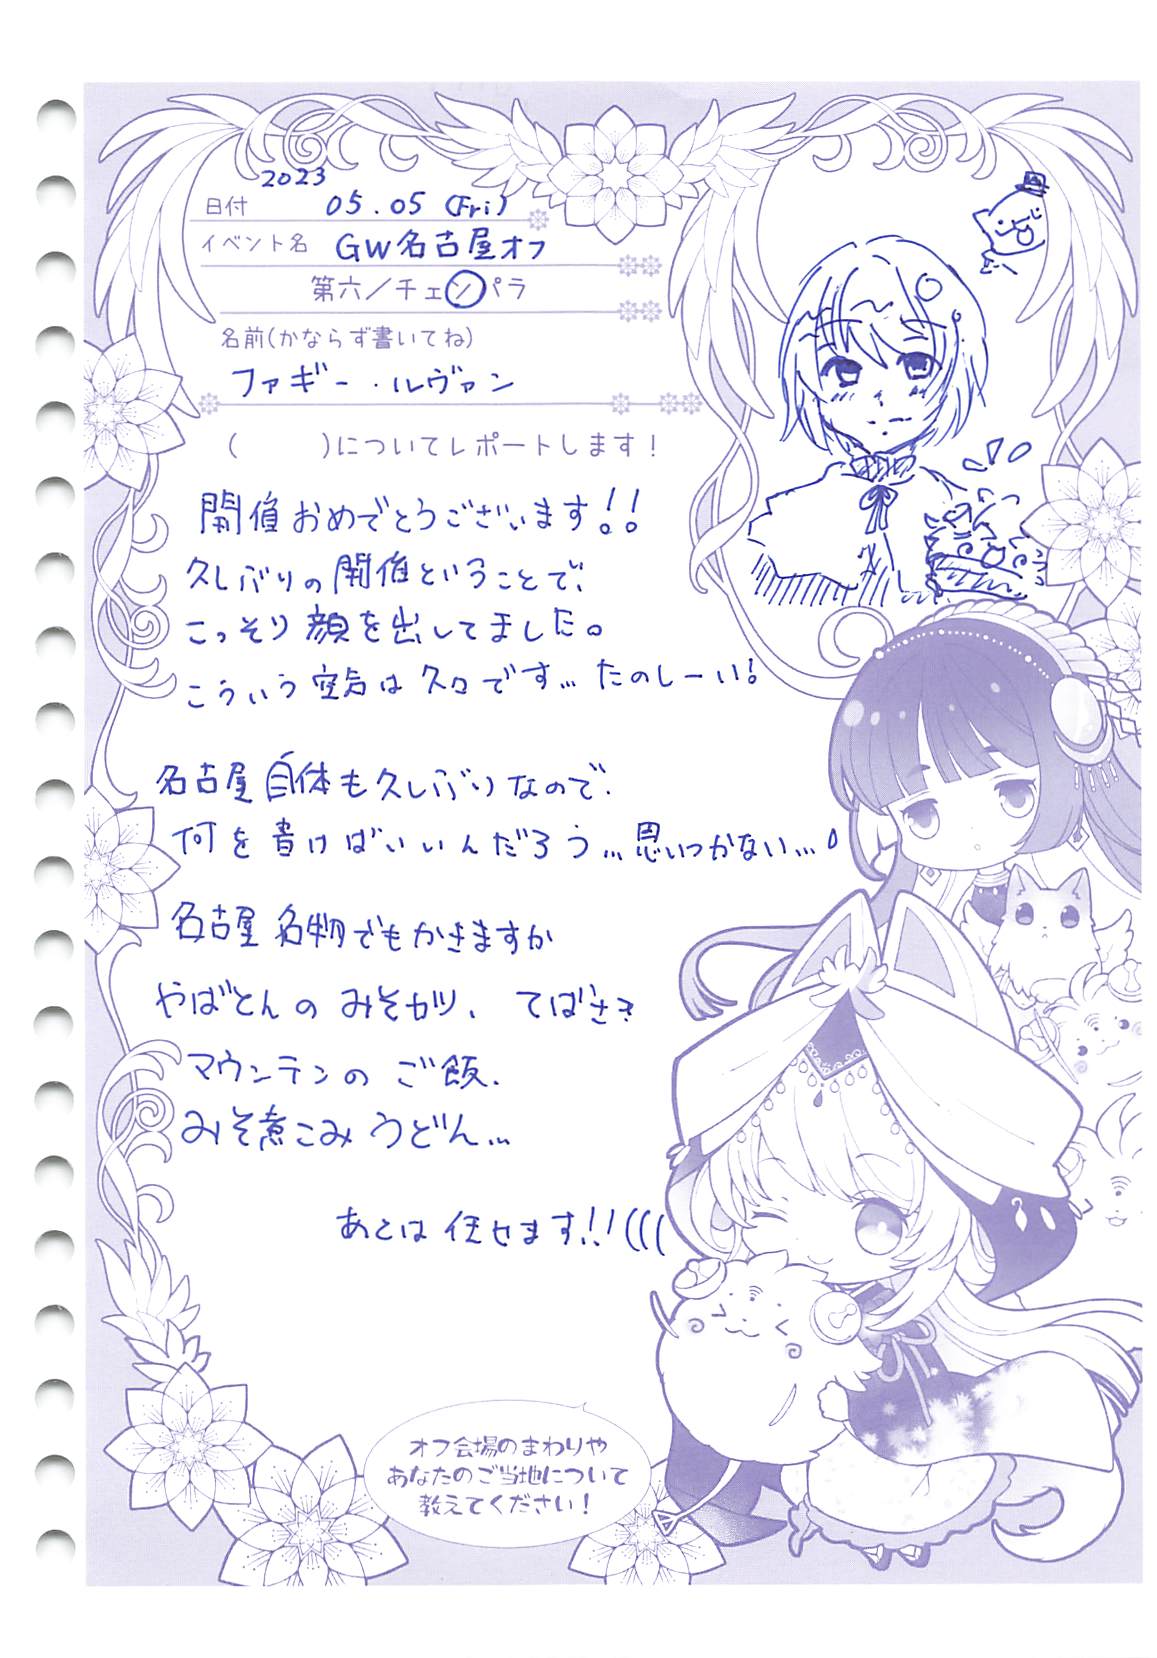 2023
日付 05.05 (Fri)
イベント名 GW名古屋オフ
第六／チェンパラ
名前(かならず書いてね)
ファギー・ルヴァン
(　　　)についてレポートします！
開催おめでとうございます!!
久しぶりの開催ということで、
こっそり顔を出してました。
こういう空気は久々です… たのしーい!
名古屋自体も久しぶりなので、
何を書けばいいんだろう…思いつかない…
名古屋名物でもかきますか
やばとんのみそカツ、てばさき
マウンテンのご飯、
みそ煮こみうどん…
あとは任せます!!(((
オフ会場のまわりや
あなたのご当地について
教えてください！